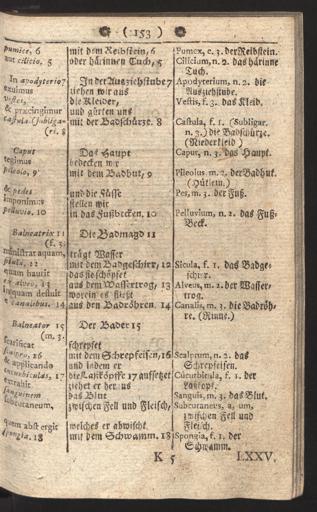 ( 153 )
pumice, 6
aut cilicio, 5
In apodyterio 7
exuimus
vestes,
& præcingimur
castula (subliga-
ri. 8
Caput
tegimus
pileolo, 9
& pedes
imponimus
pelluvio. 10
Balneatrix 11
(f. 3.
ministrat aquam,
situla, 12
quam haurit
ex alveo, 13
in quem defluit
e canalibus. 14
Balneator 15
(m. 3.
scarificat
scalpro, 16
& applicando
cucurbitulas, 17
extrahit
sanguinem
subcutaneum,
quem abstergit
spongia. 18
mit dem Reibstein, 6
oder härinnen Tuch, 5
In der Ausziehstube 7
ziehen wir aus
die Kleider,
und gürten uns
mit der Badschürze. 8
Das Haupt
bedecken wir
mit dem Badhut, 9
und die Füsse
stellen wir
in das Fußbecken. 10
Die Badmagd 11
trägt Wasser
mit dem Badgeschirr, 12
das sie schöpfet
aus dem Wassertrog, 13
worein es fließt
aus den Badröhren. 14
Der Bader 15
schrepfet
mit dem Schrepfeisen, 16
und indem er
die Laßköpffe 17 aufsetzet
ziehet er heraus
das Blut
zwischen Fell und Fleisch,
welches er abwischt
mit dem Schwamm. 18
Pumex, c. 3. der Reibstein.
Cilicium, n. 2. das härinne
Tuch.
Apodyterium, n. 2. die
Ausziehstube.
Vestis, f. 3. das Kleid.
Castula, f. 1. (Subligar,
n. 3.) die Badschürze.
(Niederkleid)
Caput, n. 3. das Haupt.
Pileolus, m. 2. der Badhut.
(Hütlein.)
Pes, m. 3. der Fuß.
Pelluvium, n. 2. das Fuß-
Beck.
Sicula, f. 1. das Badge-
schirr.
Alveus, m. 2. der Wasser-
trog.
Canalis, m. 3. die Badröh-
re. (Rinne.)
Scalprum, n. 2. das
Schrepfeisen.
Cucurbitula, f. 1. der
Laßkopf.
Sanguis, m. 3. das Blut.
Subcutaneus, a, um,
zwischen Fell und
Fleisch.
Spongia, f. 1. der
Schwamm.
K 5
LXXV.